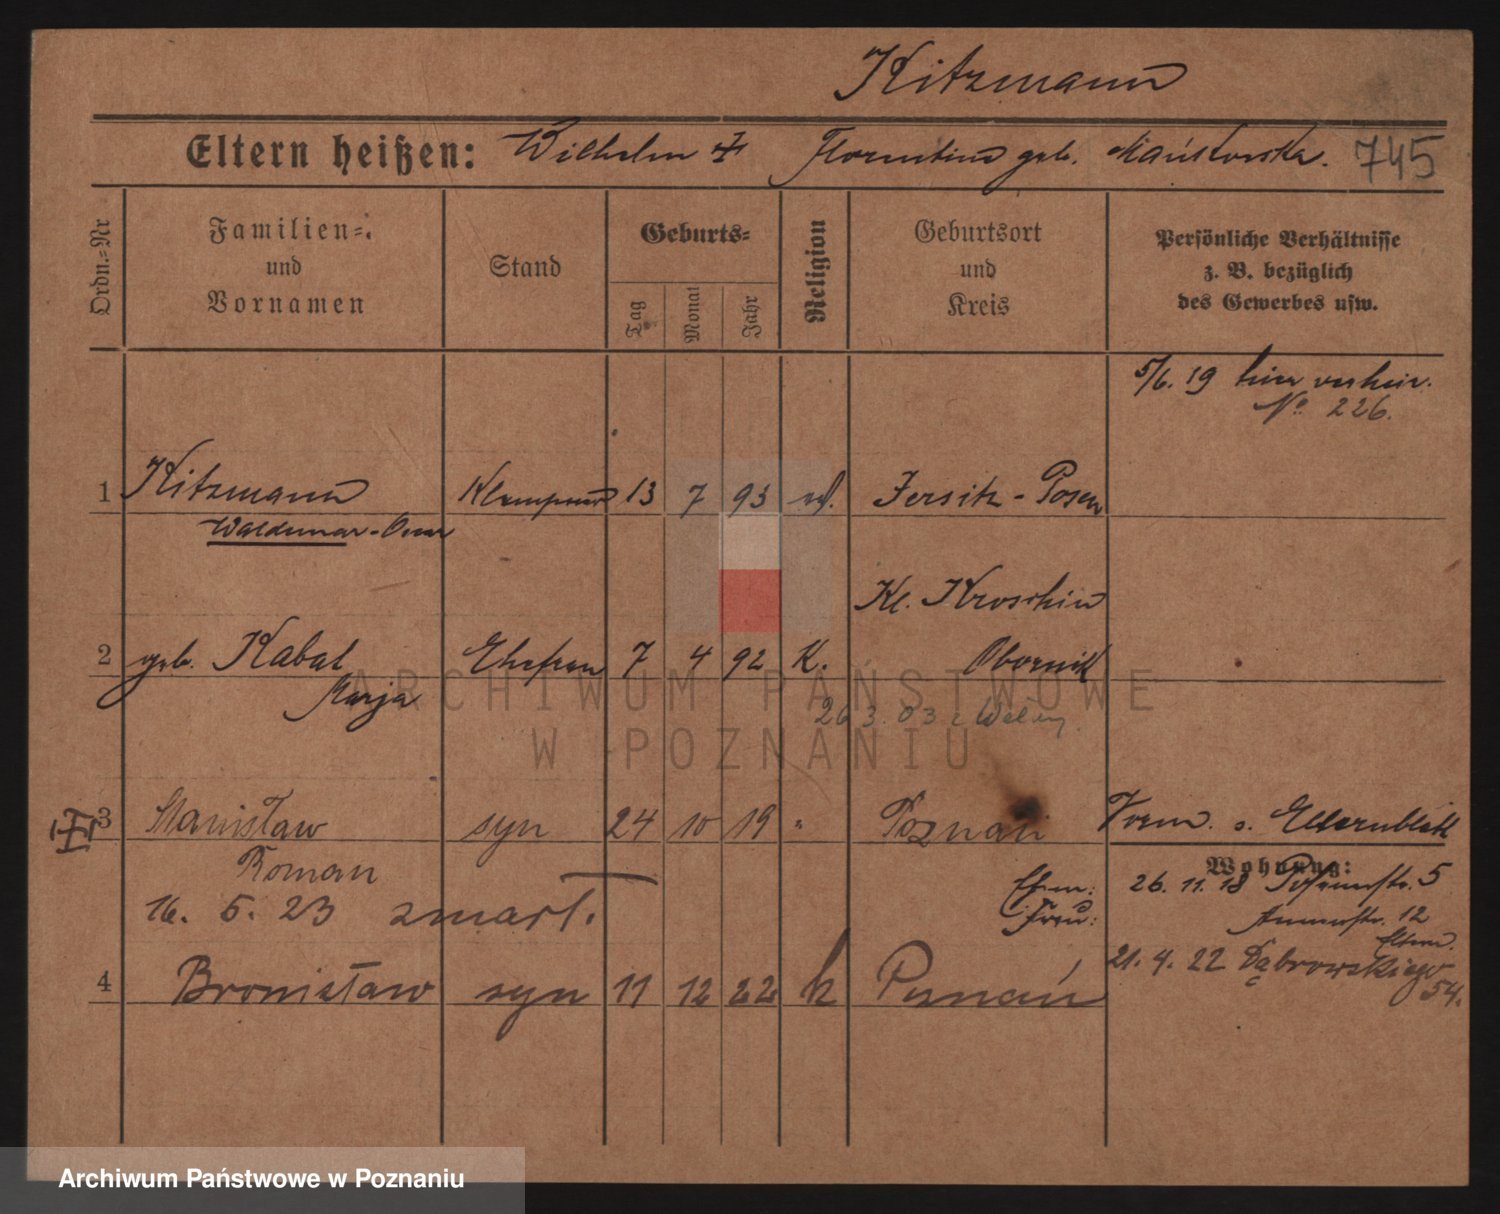 Kitzmann
Eltern heißen: Wilhelm Florentine geb. 745
Ordn.=Nr
Familien=
und
Vornamen
Stand
Geburts=
Tag
Monat
Jahr
Religion
Geburtsort
und
Kreis
Persönliche Verhältnisse
z. B. bezüglich
des Gewerbes usw.
5/6. 19 hier verheir.
No 226.
1 Kitzmann Klempner 13 7 93 ev. Jersitz - Posen
Waldemar-Oscar
Kl. Kroschin
2 geb. Kabat Ehefrau 7 4 92 K. Obornik
Marja
26 3. 03 z
3 Stanisław syn 24 10 19 " Poznań Vorm. s. Elternblatt
Roman
Wohnung:
Ehem: 26. 11. 18 5
16. 5. 23 zmarł. Frau: 12
Eltern.
21. 4. 22 Dąbrowskiego
54.
4 Bronisław syn 11 12 22 k Poznań
ARCHIWUM PAŃSTWOWE
W POZNANIU
Archiwum Państwowe w Poznaniu